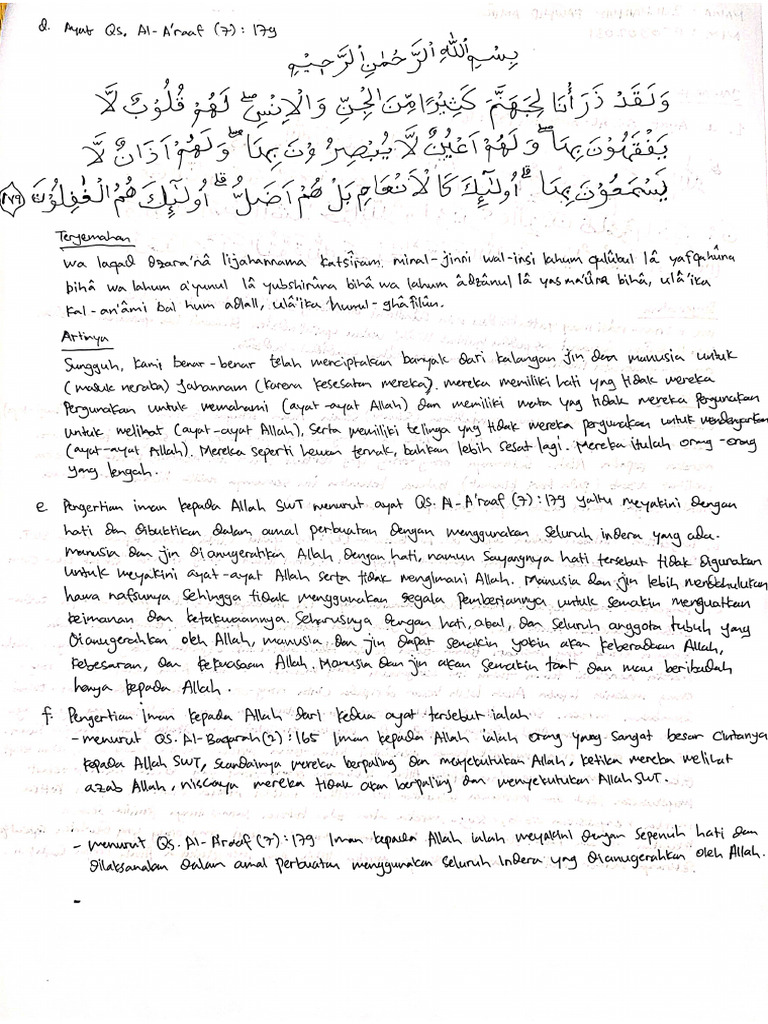 d. Ayat Qs. Al-A'raaf (7) : 179
بِسْمِ اللّٰهِ الرَّحْمٰنِ الرَّحِيْمِ
وَلَقَدْ ذَرَأْنَا لِجَهَنَّمَ كَثِيْرًا مِّنَ الْجِنِّ وَالْاِنْسِۖ لَهُمْ قُلُوْبٌ لَّا
يَفْقَهُوْنَ بِهَاۖ وَلَهُمْ اَعْيُنٌ لَّا يُبْصِرُوْنَ بِهَاۖ وَلَهُمْ اٰذَانٌ لَّا
يَسْمَعُوْنَ بِهَاۗ اُولٰۤىِٕكَ كَالْاَنْعَامِ بَلْ هُمْ اَضَلُّۗ اُولٰۤىِٕكَ هُمُ الْغٰفِلُوْنَ ١٧٩
Terjemahan
wa laqad dzara'nâ lijahannama katsîram minal-jinni wal-insi lahum qulûbul lâ yafqahûna
bihâ wa lahum a'yunul lâ yubshirûna bihâ wa lahum âdzânul lâ yasma'ûna bihâ, ulâ'ika
kal-an'âmi bal hum adlall, ulâ'ika humul-ghâfilûn.
Artinya
Sungguh, kami benar-benar telah menciptakan banyak dari kalangan jin dan manusia untuk
(masuk neraka) Jahannam (karena kesesatan mereka). mereka memiliki hati yng tidak mereka
pergunakan untuk memahami (ayat-ayat Allah) dan memiliki mata yng tidak mereka pergunakan
untuk melihat (ayat-ayat Allah), serta memiliki telinga yng tidak mereka pergunakan untuk mendengarkan
(ayat-ayat Allah). Mereka seperti hewan ternak, bahkan lebih sesat lagi. Mereka itulah orang-orang
yang lengah.
e. Pengertian iman kepada Allah SWT menurut ayat QS. Al-A'raaf (7) : 179 yaitu meyakini dengan
hati dan dibuktikan dalam amal perbuatan dengan menggunakan seluruh indera yang ada.
Manusia dan jin dianugerahkan Allah dengan hati, namun sayangnya hati tersebut tidak digunakan
untuk meyakini ayat-ayat Allah serta tidak mengimani Allah. Manusia dan jin lebih mendahulukan
hawa nafsunya sehingga tidak menggunakan segala pemberiannya untuk semakin menguatkan
keimanan dan ketakwaannya. Seharusnya dengan hati, akal, dan seluruh anggota tubuh yang
dianugerahkan oleh Allah, manusia dan jin dapat semakin yakin akan keberadaan Allah,
kebesaran, dan kekuasaan Allah. Manusia dan jin akan semakin taat dan mau beribadah
hanya kepada Allah.
f. Pengertian Iman kepada Allah dari kedua ayat tersebut ialah
- menurut QS. Al-Baqarah (2) : 165 Iman kepada Allah ialah orang yang sangat besar cintanya
kepada Allah SWT, seandainya mereka berpaling dan menyekutukan Allah, ketika mereka melihat
azab Allah, niscaya mereka tidak akan berpaling dan menyekutukan Allah SWT.
- menurut Qs. Al-A'raaf (7) : 179 Iman kepada Allah ialah meyakini dengan sepenuh hati dan
dilaksanakan dalam amal perbuatan menggunakan seluruh Indera yng dianugerahkan oleh Allah.
-